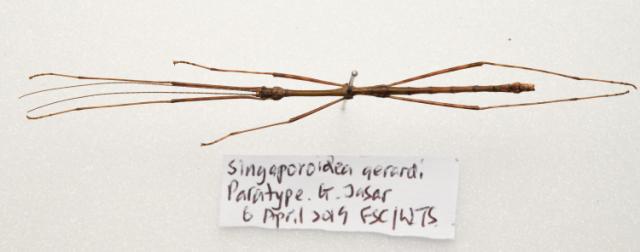 Singaporoidea gerardi
Paratype. G. Jasar
6 April 2019 FSC/WTS